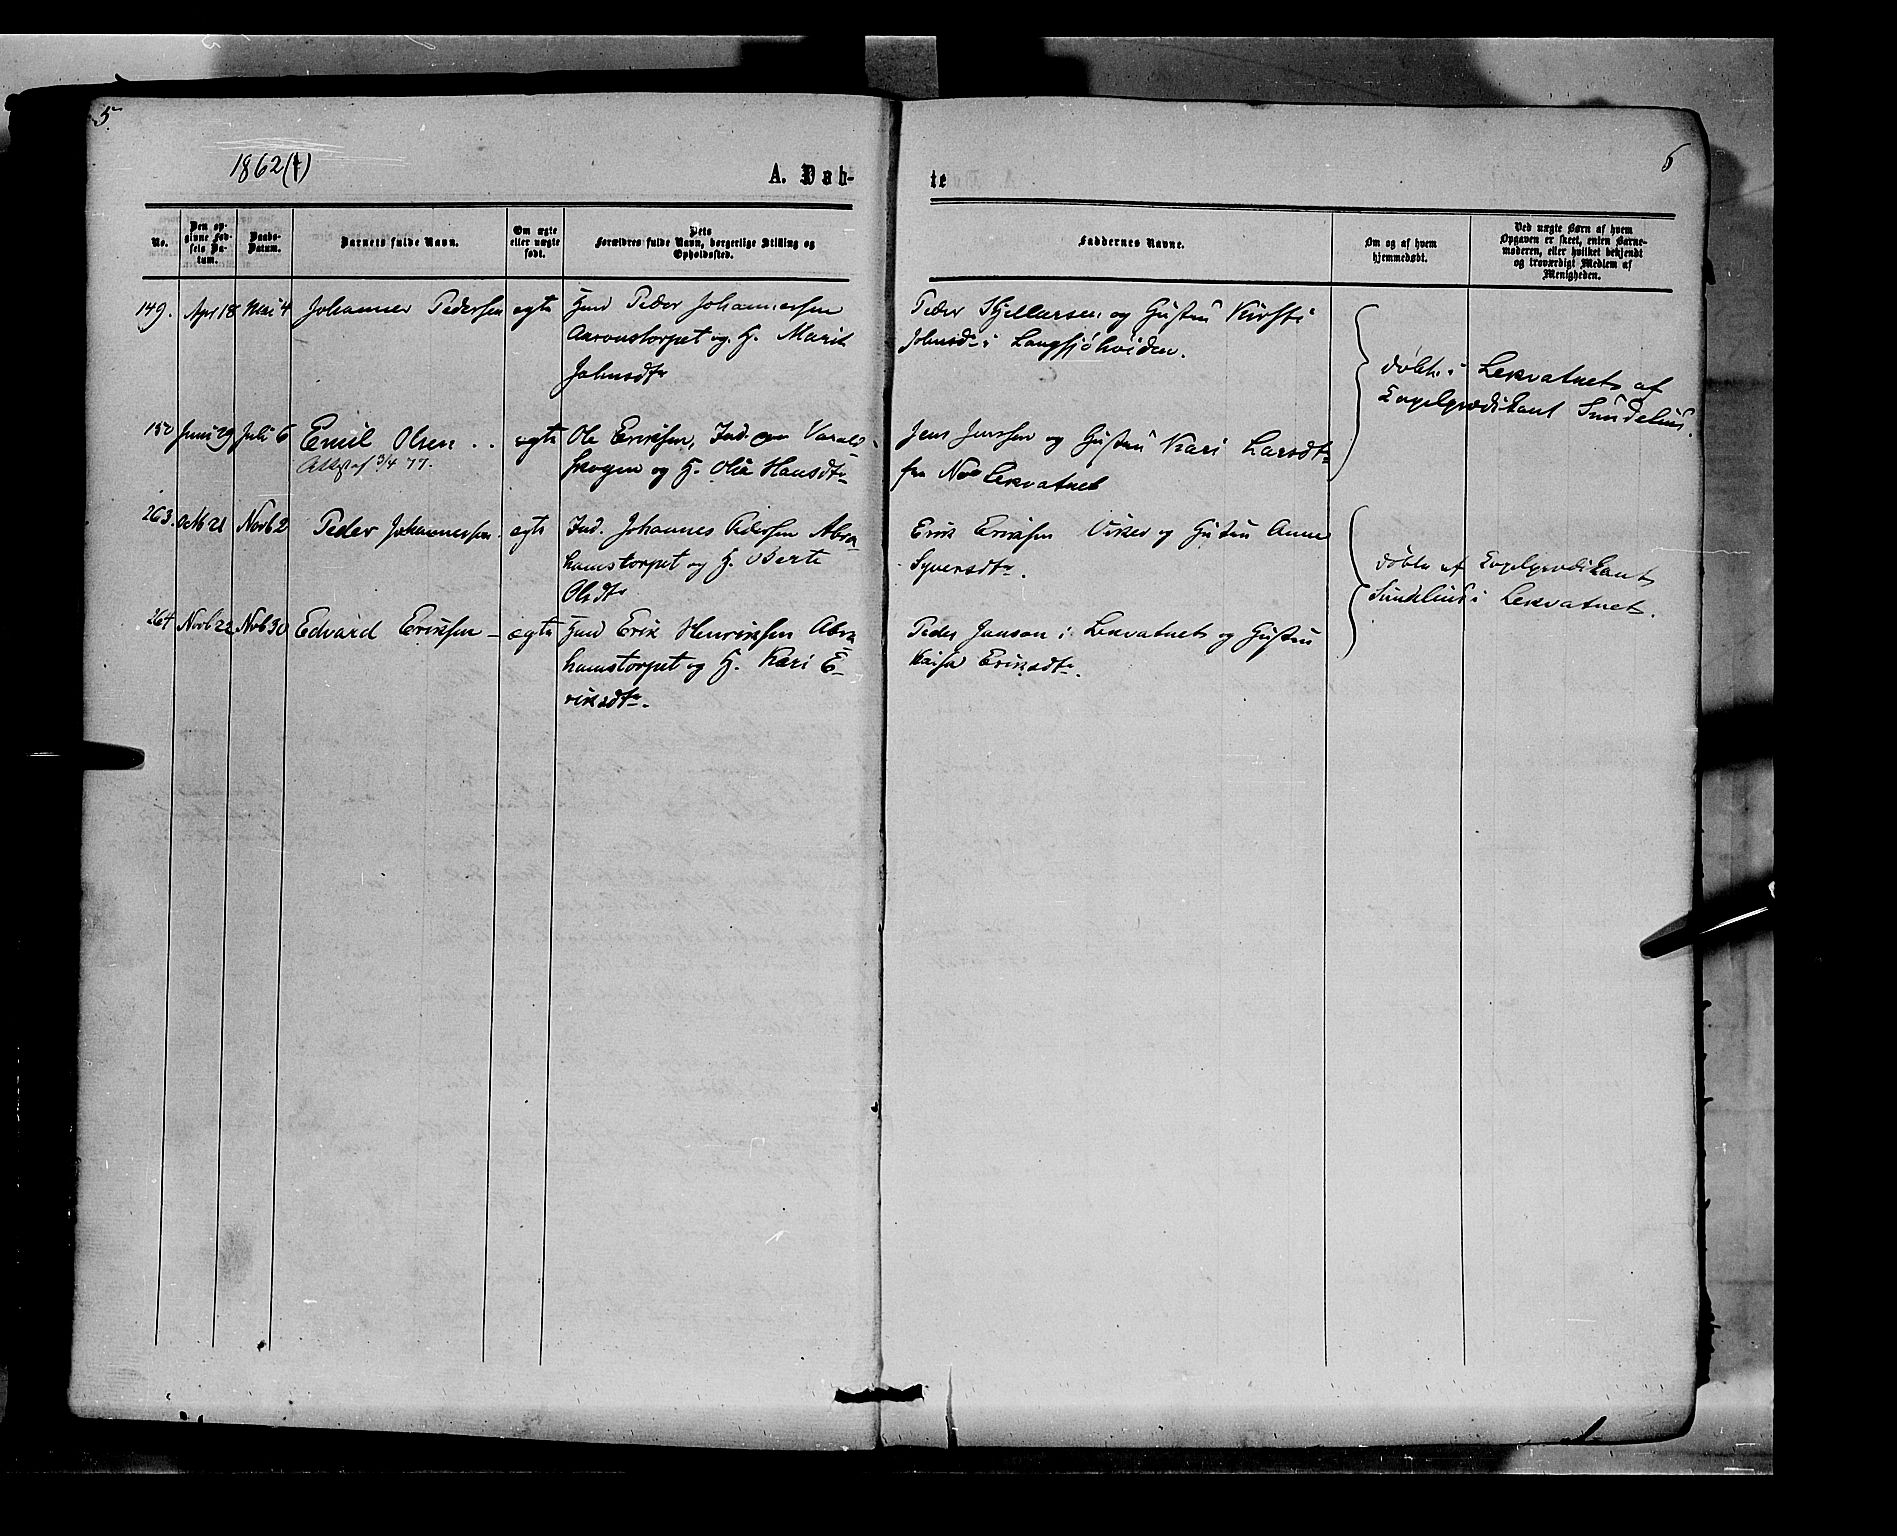 5.
6
1862(4)
A. Døb-
te
No.
Den op-
givne Fød-
sels Da-
tum.
Daabs-
Datum.
Barnets fulde Navn.
Om ægte
eller uægte
født.
Dets
Forældres fulde Navn, borgerlige Stilling og
Opholdssted.
Faddernes Navne.
Om og af hvem
hjemmedøbt.
Ved uægte Børn af hvem
Opgaven er skeet, enten Barne-
moderen, eller hvilket bekjendt
og troværdigt Medlem af
Menigheden.
149. Apr 18 Mai 4 Johannes Pedersen egte Peder Johannessen
Aaronstorpet og H. Marit
Johnsdtr
Peder Kjellersen og Hustru Kirsti
Johnsdr i
døbte i Lekvatnets af
Sundelius.
150 Juni 29 Juli 6 Emil Olsen .. egte Ole Eriksen, Ind. Varald-
skogen og H. Olia Hansdtr
Attest af 3/4 77.
Jens Jenssen og Hustru Kari Larsdtr
fra Lekvatnet
263. Octb 21 Novb 2 Peder Johannessen egte Ind. Johannes Pedersen Abra-
hamstorpet og H. Berte
Olsdtr
Erik Eriksen og Hustru Anne
Syversdtr.
døbte af
Sundelius i Lekvatnet.
264 Novb 22 Novb 30 Edvard Eriksen - egte Erik Henriksen Abra
hamstorpet og H. Kari E-
riksdtr.
Peder Janson i Lekvatnets og Hustru
Kaisa Eriksdtr.